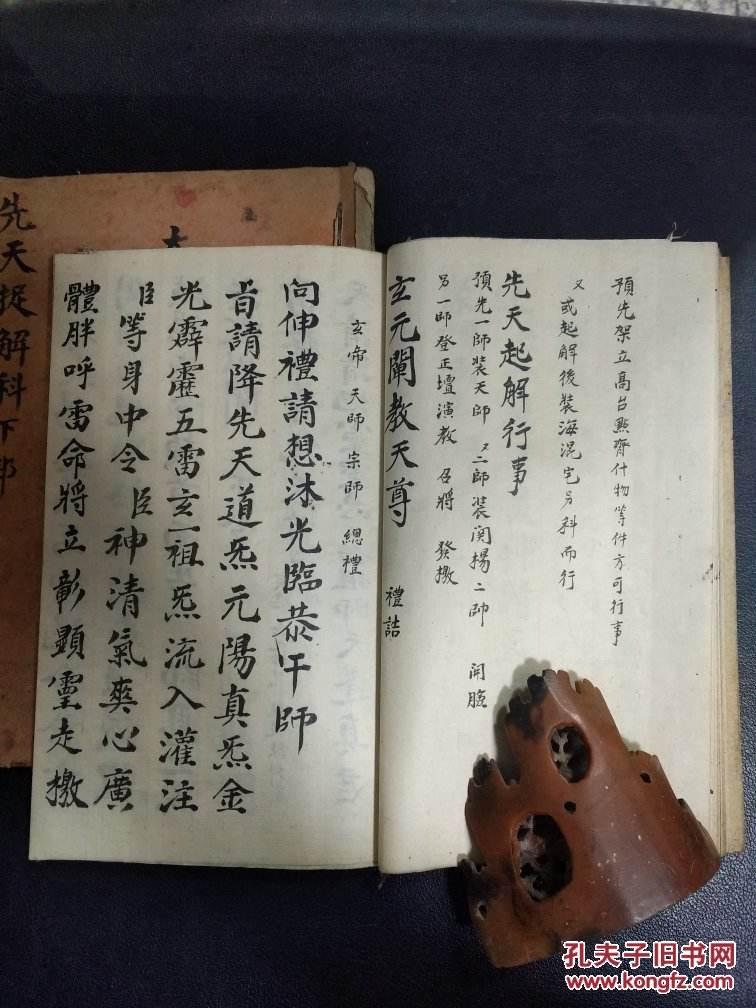 預先架立高台點齊什物等件方可行事
又或起解後裝海混宅另科而行
先天起解行事
預先一師裝天師 又二師裝関揚二帥 開臉
另一師登正壇演教 召將 發檄
玄元闡教天尊 禮誥
玄帝 天師 宗師 總禮
向伸禮請想沐光臨恭干師
旨請降先天道炁元陽真炁金
光霹靂五雷玄一祖炁流入灌注
臣等身中令臣神清氣爽心廣
體胖呼雷命將立彰顯靈走檄
先天捉解科下部
孔夫子旧书网
www.kongfz.com